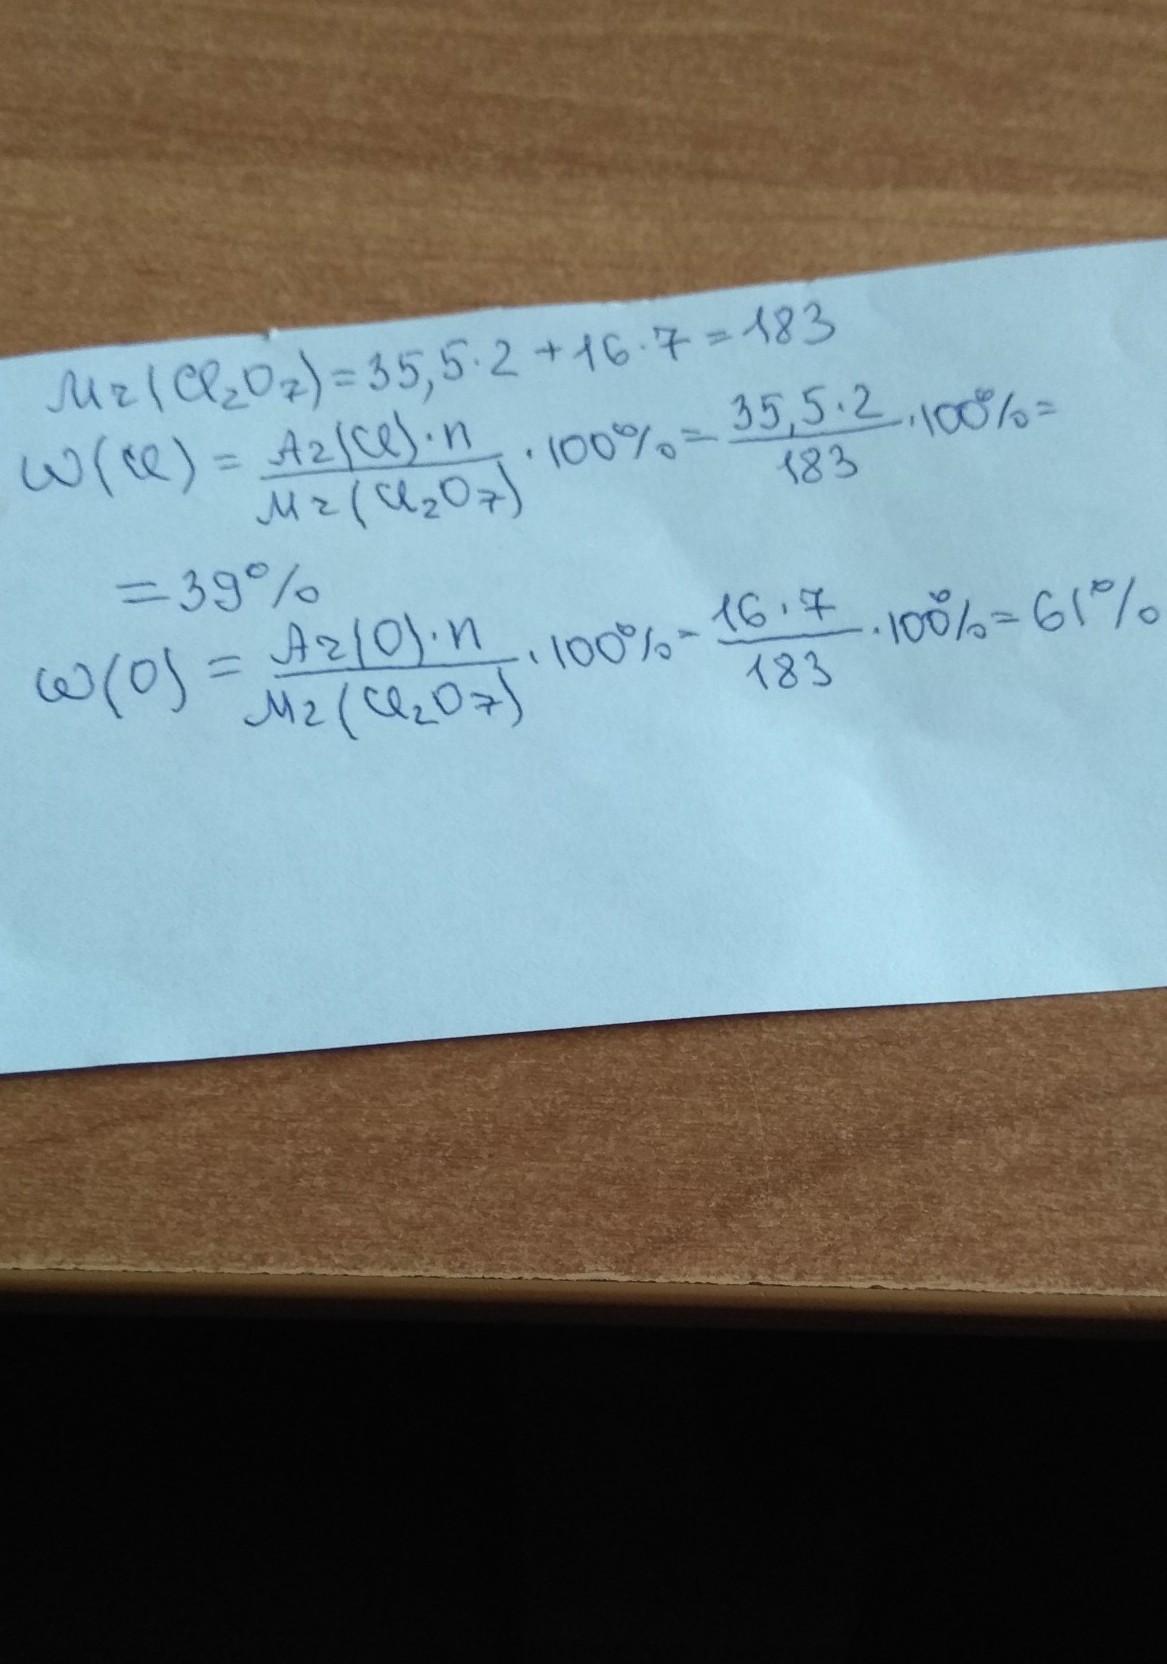 Mr(Cl₂O₇)=35,5·2+16·7=183
ω(Cl) = Ar(Cl)·n / Mr(Cl₂O₇) ·100%= 35,5·2 / 183 ·100%=
=39%
ω(O) = Ar(O)·n / Mr(Cl₂O₇) ·100%= 16·7 / 183 ·100%=61%